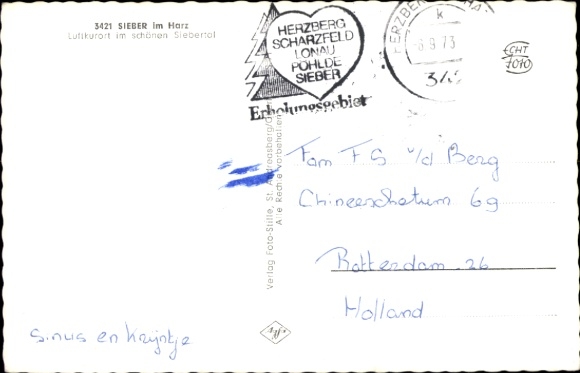 3421 SIEBER im Harz
Luftkurort im schönen Siebertal
HERZBERG
SCHARZFELD
LONAU
PÖHLDE
SIEBER
Erholungsgebiet
HERZBERG HA
k
-8.9.73
34
ECHT
7010
Verlag Foto-Stiffe, St. Andreasberg/
Alle Rechte vorbehalten
Fam F S v/d Berg
Chineeschetuin 69
Rotterdam 26
Holland
Sinus en Krijntje
Agfa